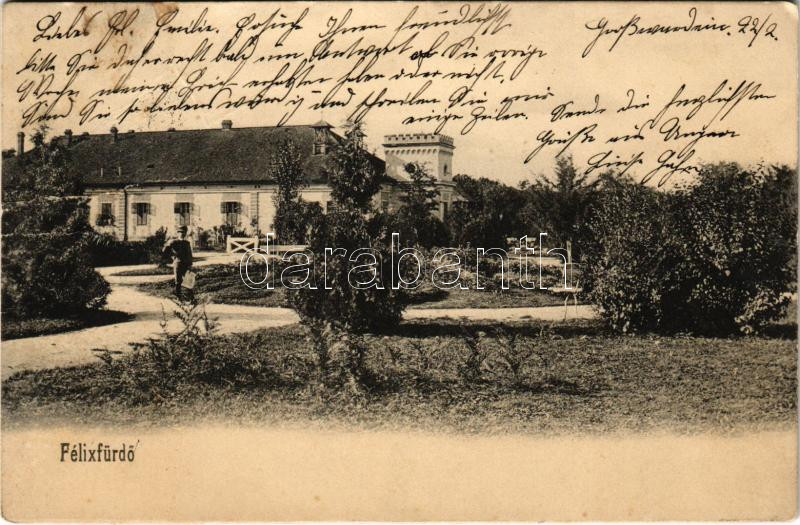 Liebes Frl. Emilie. Ersuche Ihnen freundlichst
bitte Sie daher recht bald um Antwort ob Sie vorige
Woche meinen Brief erhalten haben oder nicht.
Sind Sie so und schreiben Sie mir
einige Zeilen.
Großwardein. 22/2.
Sende die herzlichsten
Grüße aus Ungarn
darabanth
Félixfürdő